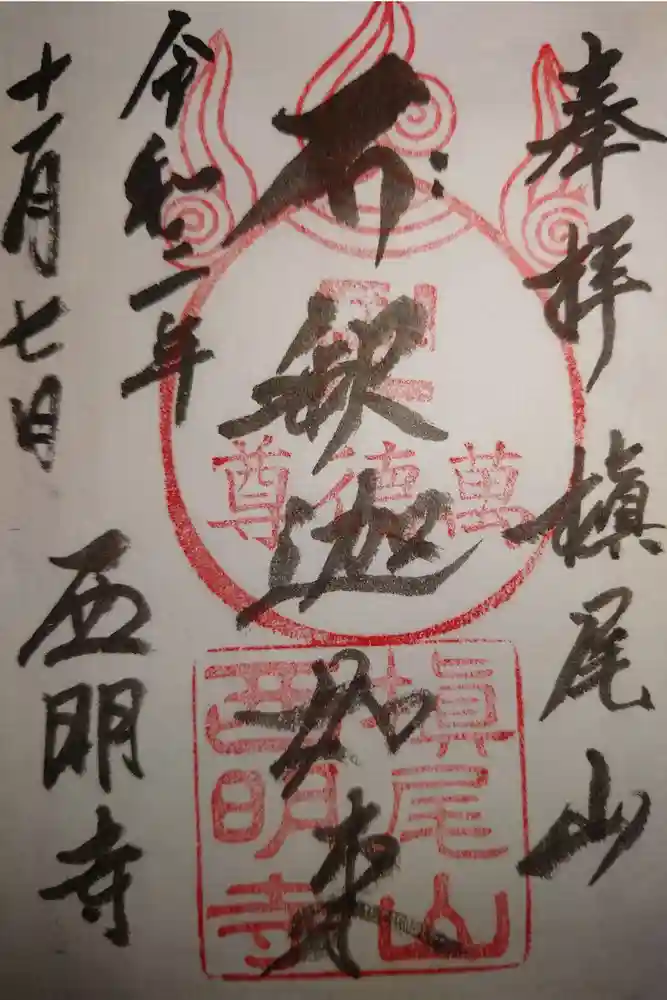 奉拝 槇尾山
釈迦如来
令和二年
十一月七日
西明寺
萬德尊
槇尾山
西明寺